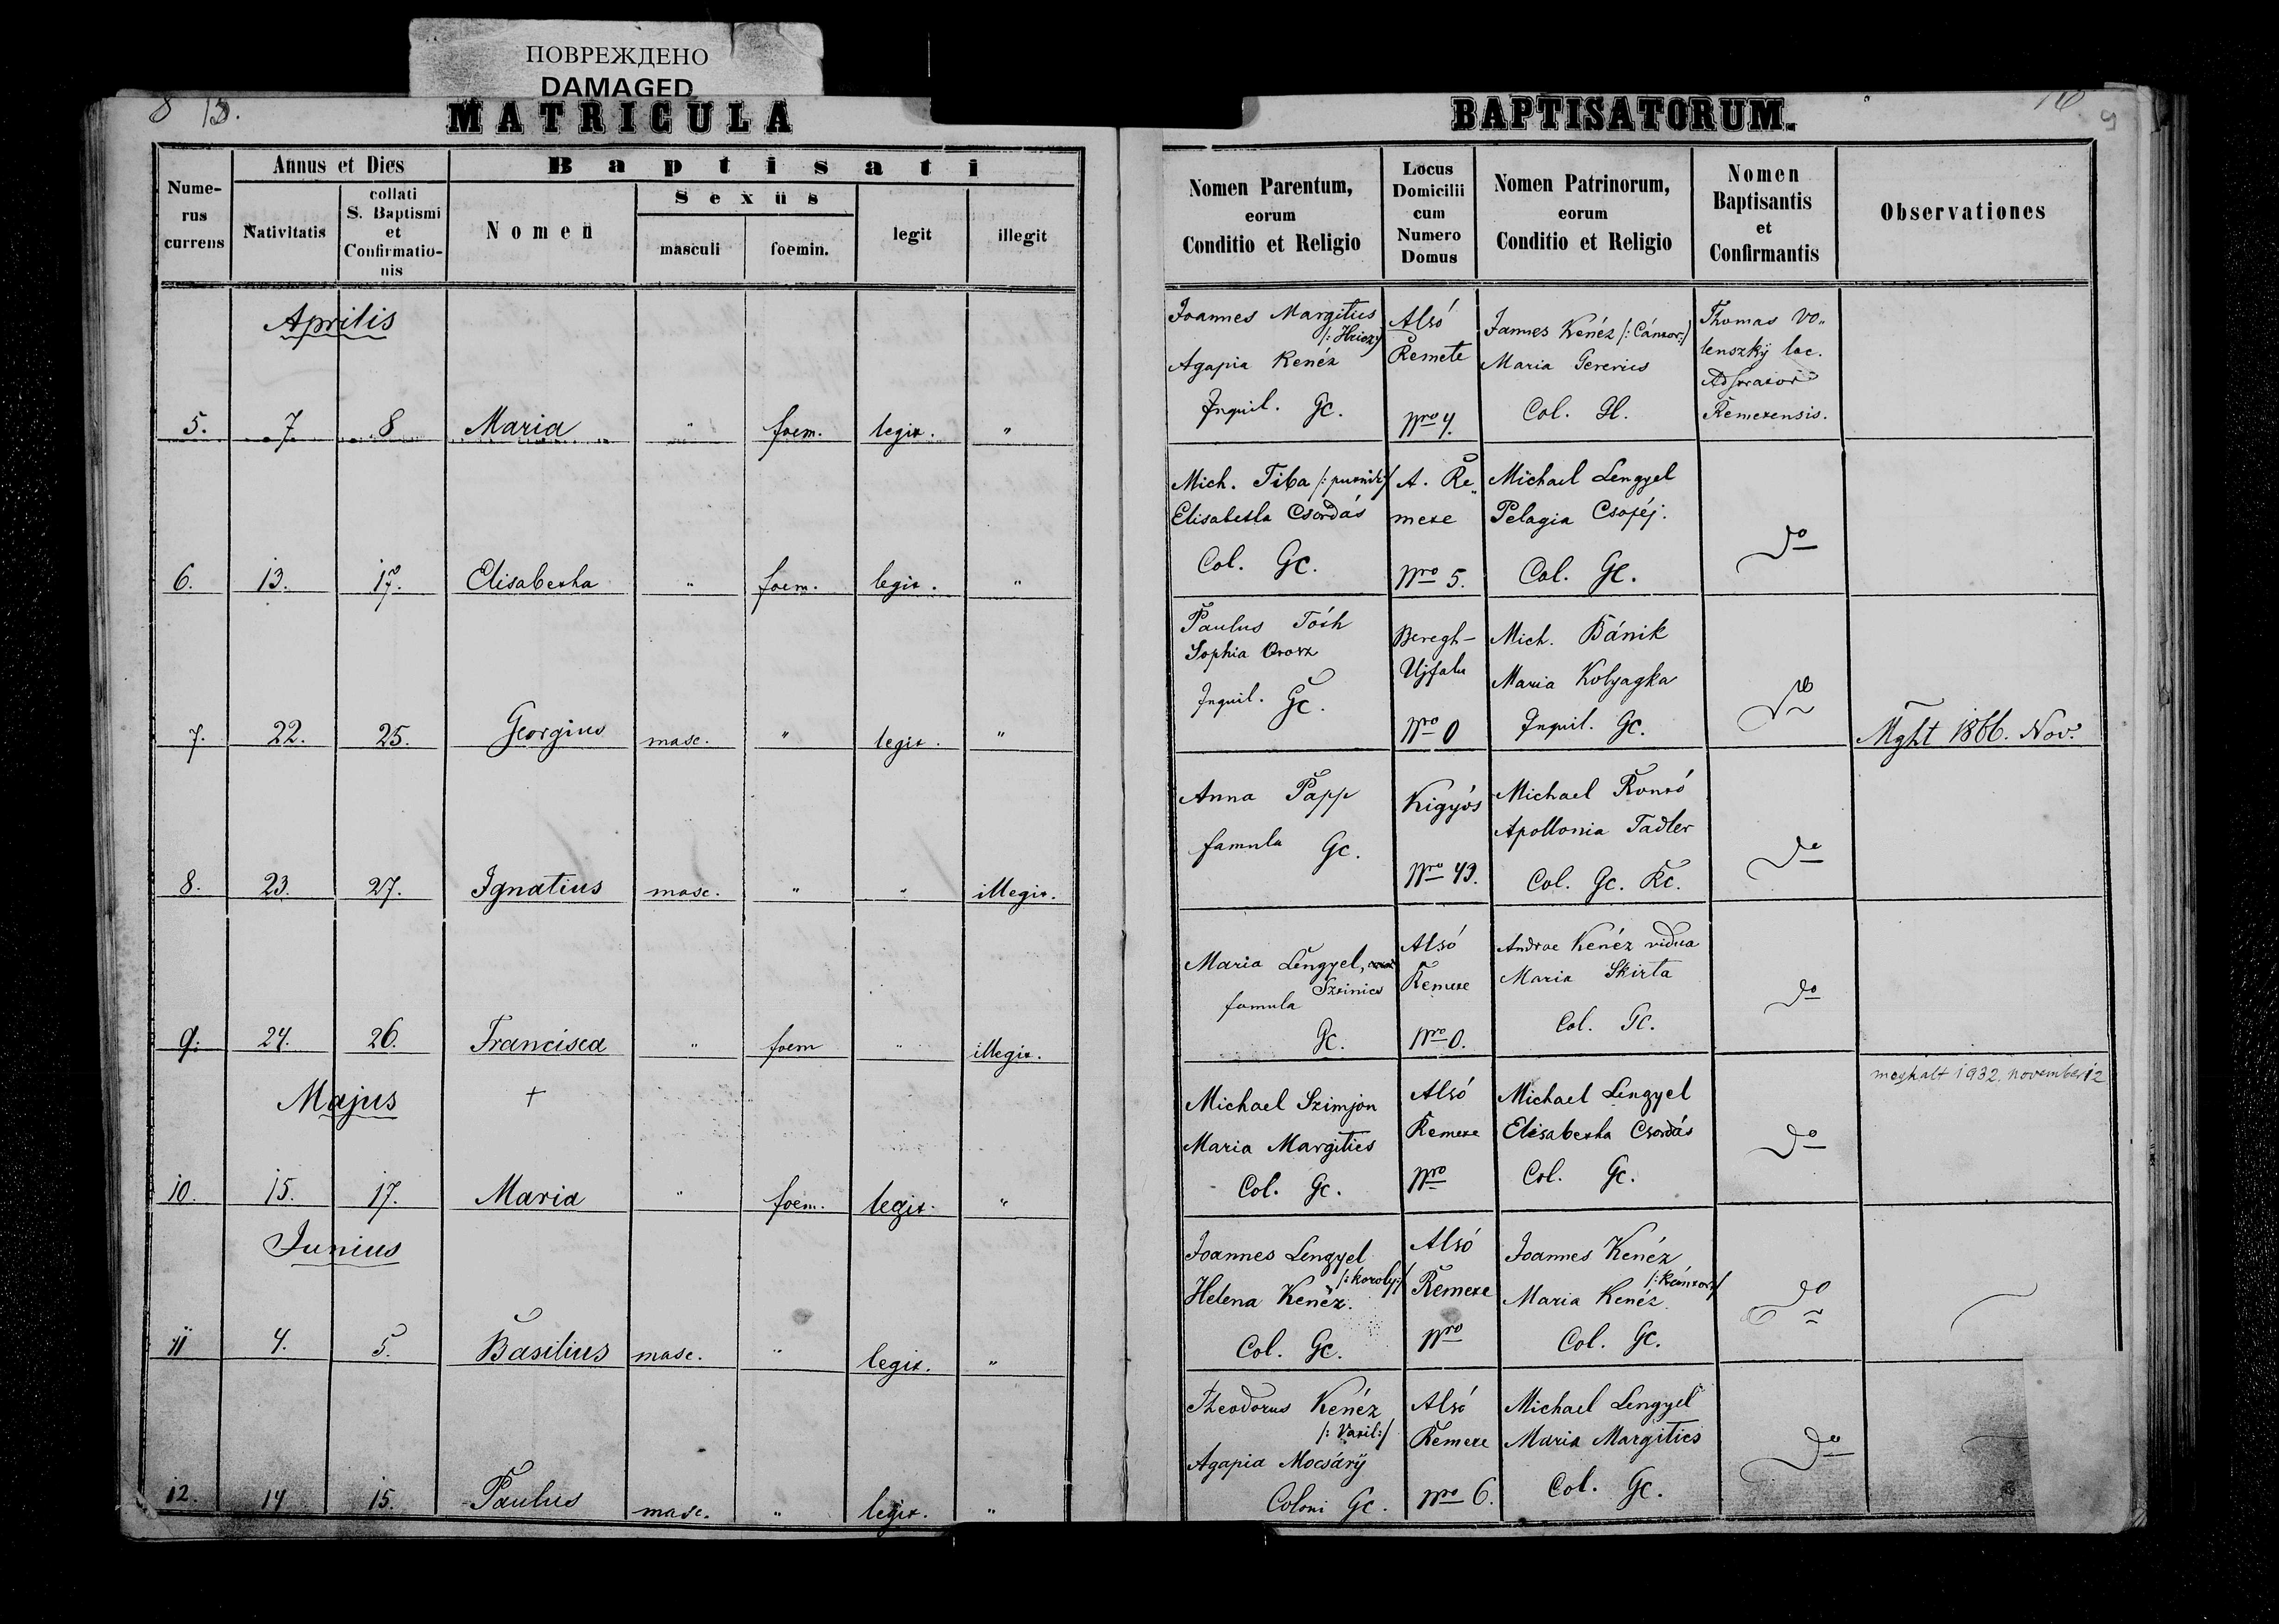 ПОВРЕЖДЕНО
DAMAGED
8 13.
MATRICULA
Numerus currens
Annus et Dies
Nativitatis
collati
S. Baptismi
et
Confirmatio-
nis
Baptisati
Nomen
Sexus
masculi
foemin.
legit
illegit
Aprilis
5. 7. 8 Maria " foem. legit. "
6. 13. 17. Elisabetha " foem. legit. "
7. 22. 25. Georgius masc. " legit. "
8. 23. 27. Ignatius masc. " " illegit.
9. 24. 26. Francisca " foem " illegit.
Majus +
10. 15. 17. Maria " foem. legit. "
Junius
11 4. 5. Basilius masc. " legit. "
12. 14 15. Paulus masc. " legit. "
BAPTISATORUM.
9
Nomen Parentum,
eorum
Conditio et Religio
Locus
Domicilii
cum
Numero
Domus
Nomen Patrinorum,
eorum
Conditio et Religio
Nomen
Baptisantis
et
Confirmantis
Observationes
Joannes Margitics
Agapia Kenéz
Inquil. Gc.
Alsó
Remete
Nro 4.
Joannes Kenéz /:Cántor:/
Maria
Col.
Thomas Vo-
lenszky loc.
Adstrator
Remetensis.
Mich. Tiba
Elisabetha Csordás
Col. Gc.
A. Re
mete
Nro 5.
Michael Lengyel
Pelagia
Col. Gc.
do
Paulus Tóth
Sophia Orosz
Inquil. Gc.
Beregh-
Ujfalu
Nro 0
Mich. Bánik
Maria Kolyagka
Inquil. Gc.
do
Mght 1866. Nov.
Anna Papp
famula Gc.
Kigyós
Nro 43.
Michael
Apollonia Tadler
Col. Gc. Rc.
do
Maria Lengyel,
famula
Gc.
Alsó
Remete
Nro 0.
Andrae Kenéz vidua
Maria Skirta
Col. Gc.
do
Michael Szimjon
Maria Margitics
Col. Gc.
Alsó
Remete
Nro
Michael Lengyel
Elisabetha Csordás
Col. Gc.
do
meghalt 1932. november 12
Joannes Lengyel
/:koroly:/
Helena Kenéz.
Col. Gc.
Alsó
Remete
Nro
Joannes Kenéz
/:Kántor:/
Maria Kenéz.
Col. Gc.
do
Theodorus Kenéz
/:Vaszil:/
Agapia Mocsáry
Coloni Gc.
Alsó
Remete
Nro 6.
Michael Lengyel
Maria Margitics
Col. Gc.
do